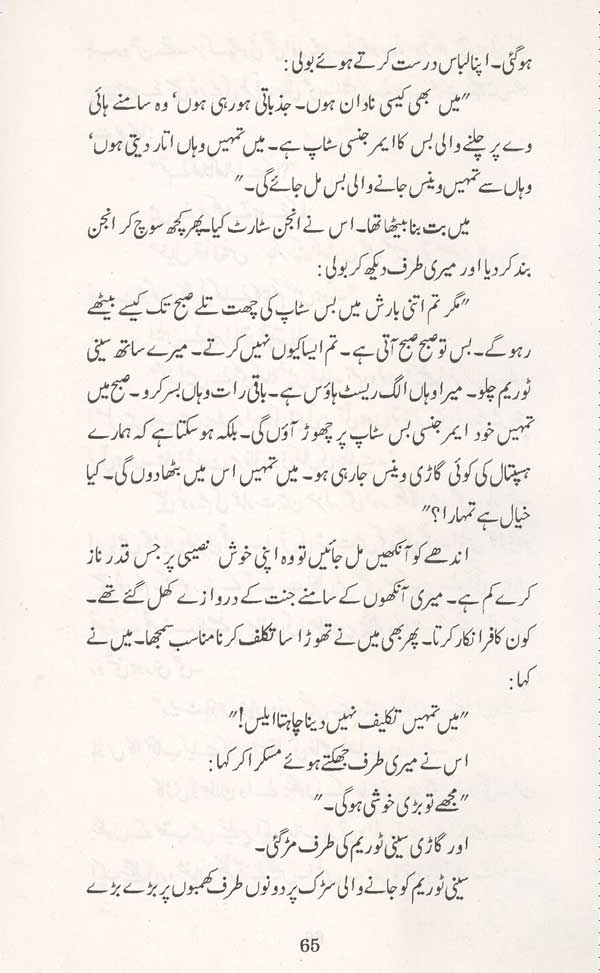 ہوگئی۔ اپنا لباس درست کرتے ہوئے بولی :
"میں بھی کیسی نادان ہوں۔ جذباتی ہو رہی ہوں‘ وہ سامنے ہائی
وے پر چلنے والی بس کا ایمرجنسی سٹاپ ہے۔ میں تمہیں وہاں اتار دیتی ہوں‘
وہاں سے تمہیں وینس جانے والی بس مل جائے گی۔"
میں بت بنا بیٹھا تھا۔ اس نے انجن سٹارٹ کیا۔ پھر کچھ سوچ کر انجن
بند کر دیا اور میری طرف دیکھ کر بولی :
"مگر تم اتنی بارش میں بس سٹاپ کی چھت تلے صبح تک کیسے بیٹھے
رہو گے۔ بس تو صبح صبح آتی ہے۔ تم ایسا کیوں نہیں کرتے۔ میرے ساتھ سینی
ٹوریم چلو۔ میرا وہاں الگ ریسٹ ہاؤس ہے۔ باقی رات وہاں بسر کرو۔ صبح میں
تمہیں خود ایمرجنسی بس سٹاپ پر چھوڑ آؤں گی۔ بلکہ ہو سکتا ہے کہ ہمارے
ہسپتال کی کوئی گاڑی وینس جا رہی ہو۔ میں تمہیں اس میں بٹھا دوں گی۔ کیا
خیال ہے تمہارا؟"
اندھے کو آنکھیں مل جائیں تو وہ اپنی خوش نصیبی پر جس قدر ناز
کرے کم ہے۔ میری آنکھوں کے سامنے جنت کے دروازے کھل گئے تھے۔
کون کافر انکار کرتا۔ پھر بھی میں نے تھوڑا سا تکلف کرنا مناسب سمجھا۔ میں نے
کہا :
"میں تمہیں تکلیف نہیں دینا چاہتا ایلس!"
اس نے میری طرف جھکتے ہوئے مسکرا کر کہا :
"مجھے تو بڑی خوشی ہوگی۔"
اور گاڑی سینی ٹوریم کی طرف مڑ گئی۔
سینی ٹوریم کو جانے والی سڑک پر دونوں طرف کھمبوں پر بڑے بڑے
65